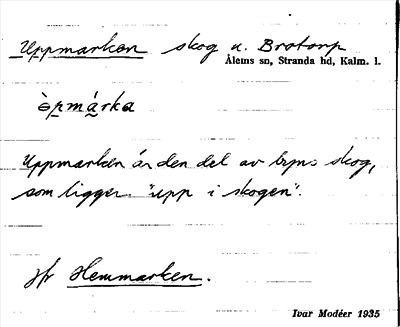 Uppmarken skog u. Brotorp
Ålems sn, Stranda hd, Kalm. l.
òpmárka
Uppmarken är den del av byns skog,
som ligger "upp i skogen".
Jfr Hemmarken.
Ivar Modéer 1935